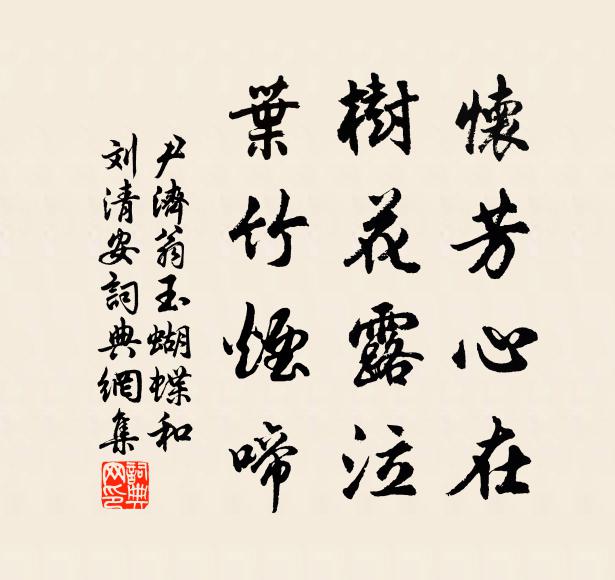 懷芳心在
樹花露泣
葉竹煙啼
尹濟翁玉蝴蝶和
刘清安詞典網集
詞典网印